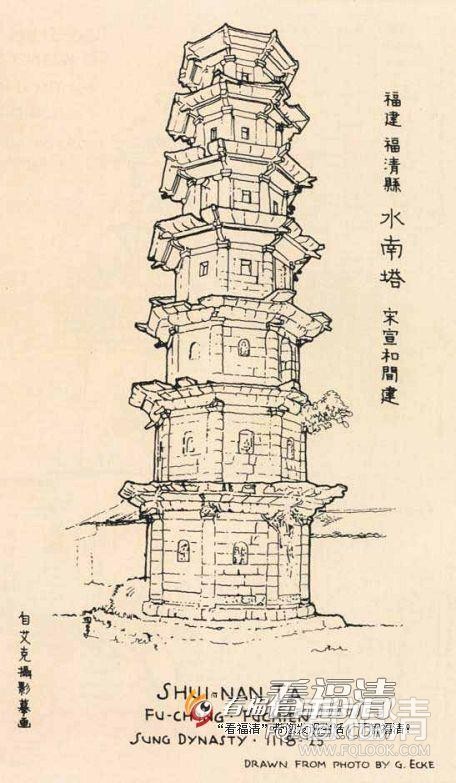 福建 福清縣 水南塔 宋宣和間建
自艾克攝影摹画
SHUI-NAN-TA
SUNG DYNASTY · 1118-25
DRAWN FROM PHOTO BY G. ECKE
看福清
WWW.FQLOOK.COM